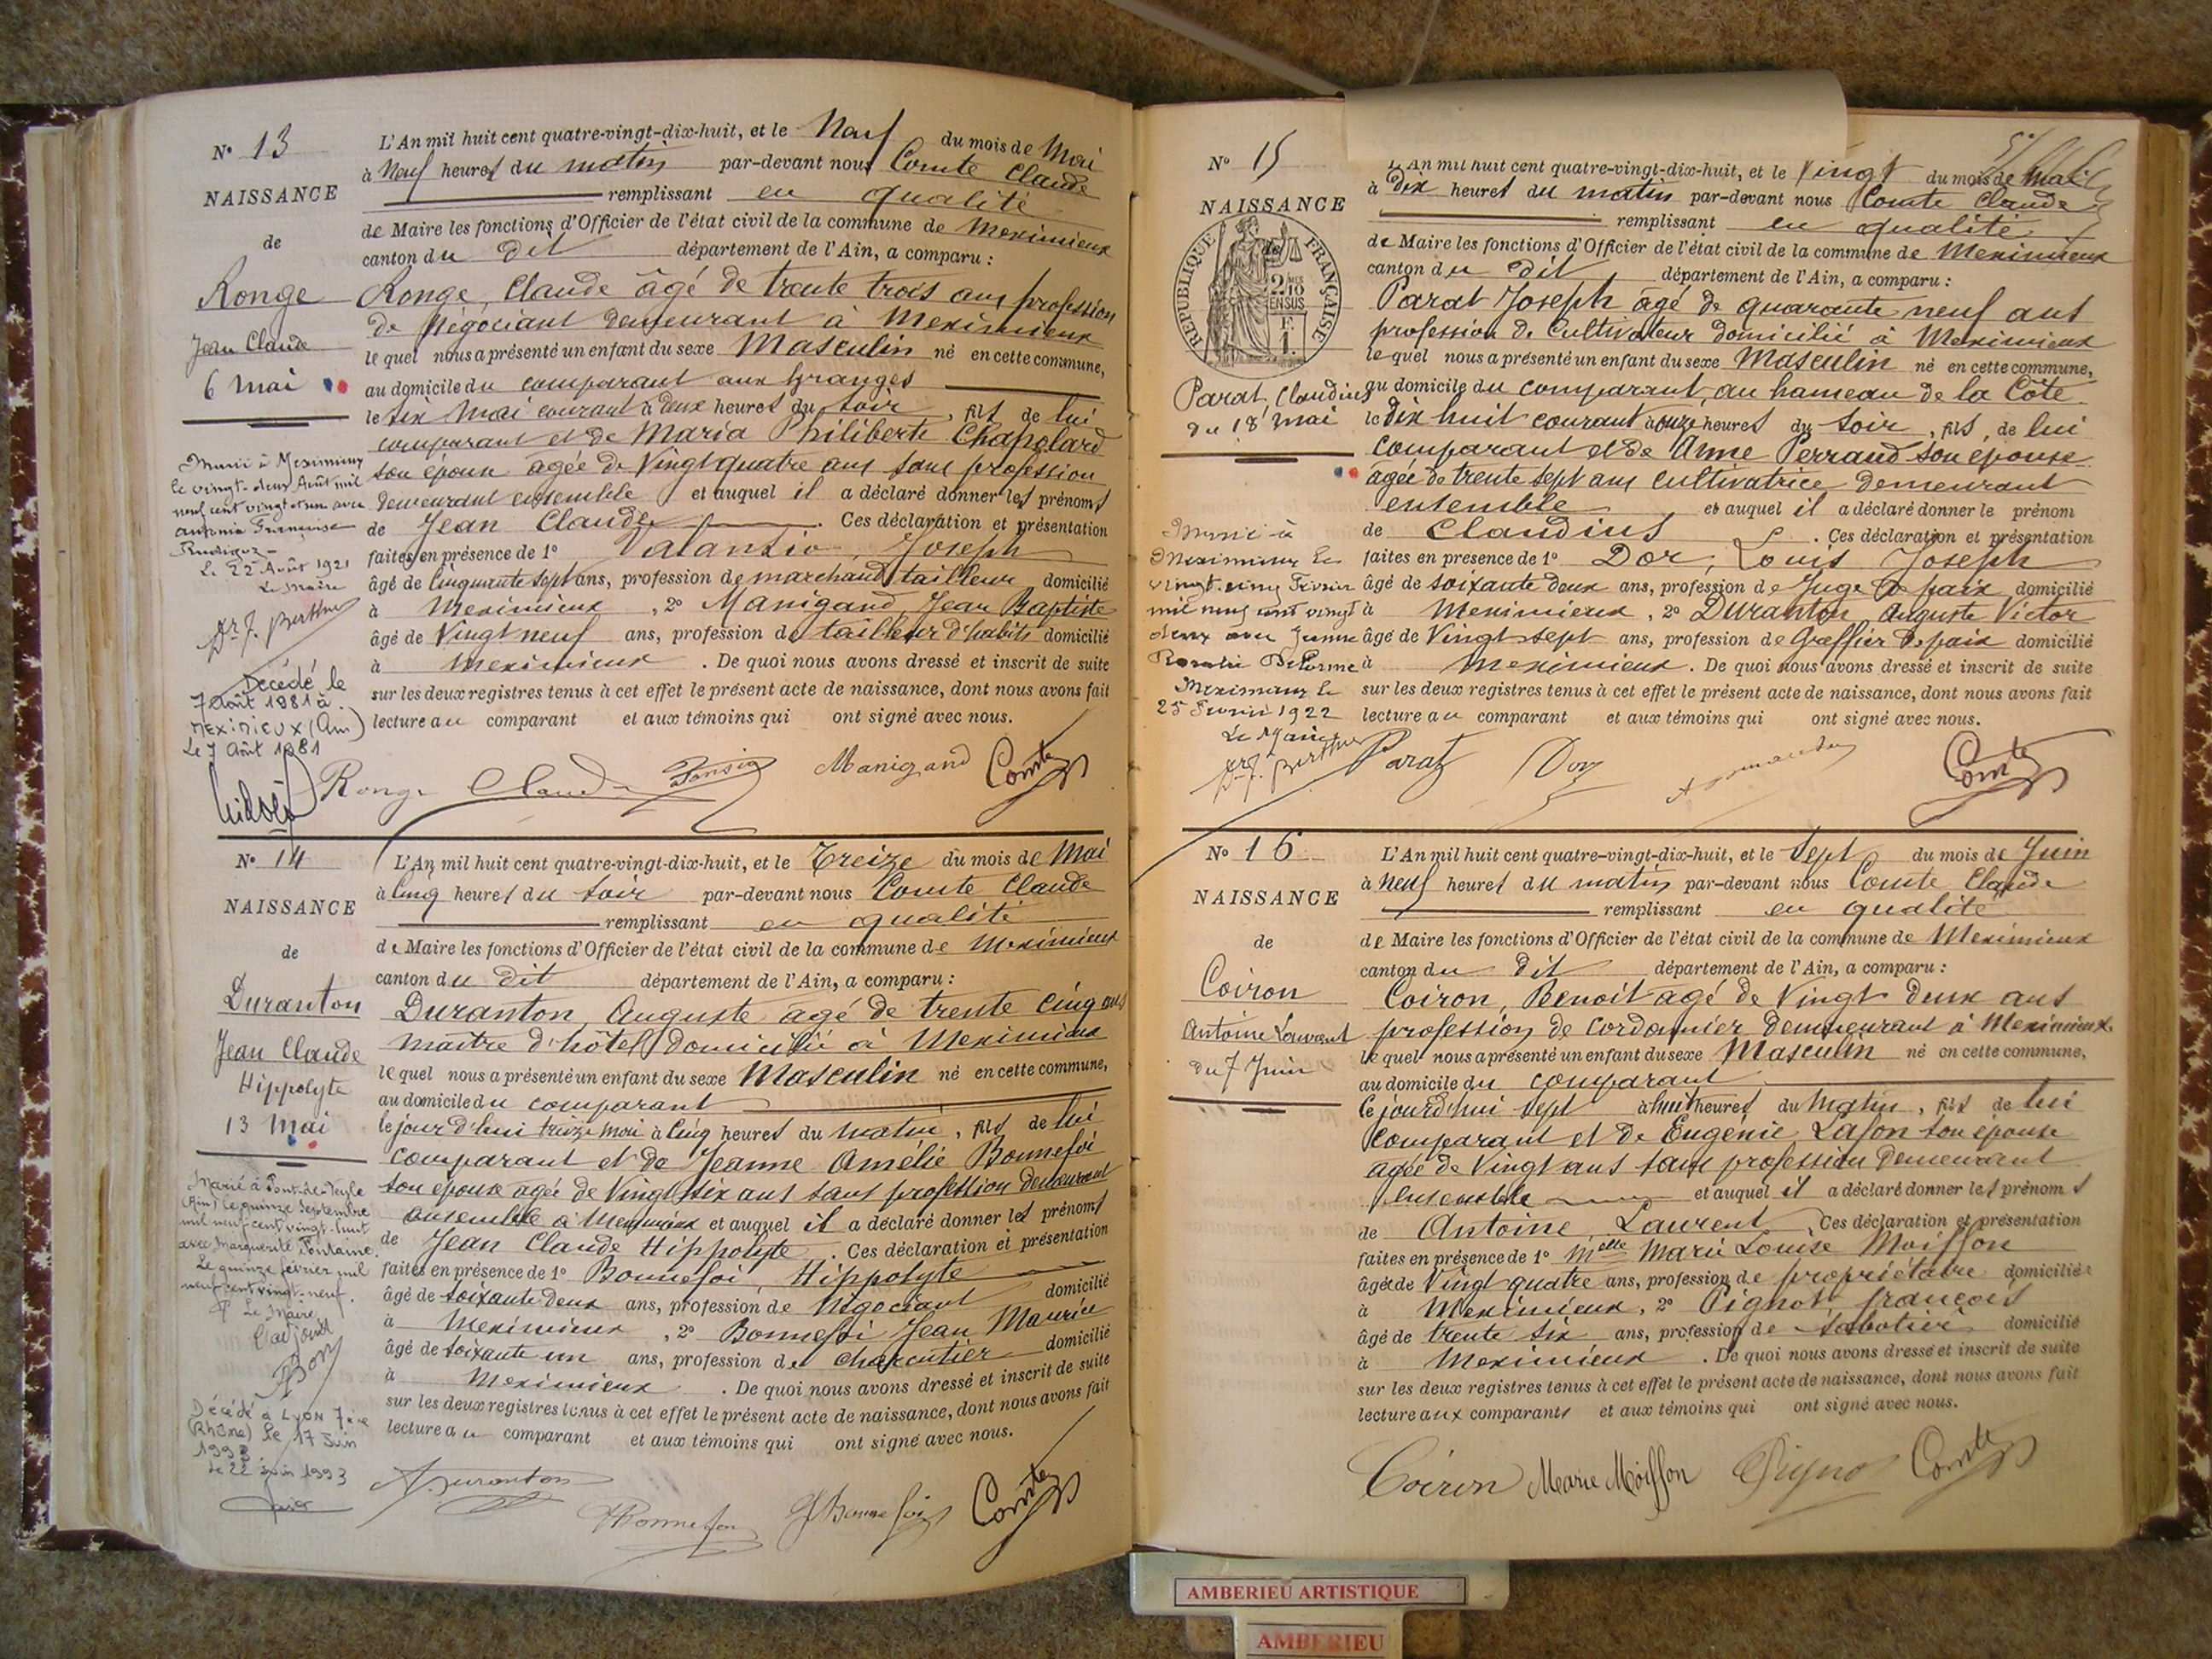 N° 13
NAISSANCE
de
Ronge
Jean Claude
6 mai
Marié à Meximieux
le vingt-deux Août mil
neuf cent vingt et un avec
Antonia Françoise
Le 22 Août 1921
Le Maire
Dr J. Berthier
Décédé le
7 Août 1981 à
MEXIMIEUX (Ain)
Le 7 Août 1981
L'An mil huit cent quatre-vingt-dix-huit, et le Neuf du mois de Mai
à Neuf heures du matin par-devant nous Comte Claude
remplissant en qualité
de Maire les fonctions d'Officier de l'état civil de la commune de Meximieux
canton du dit département de l'Ain, a comparu :
Ronge, Claude âgé de trente trois ans profession
de Négociant demeurant à Meximieux
lequel nous a présenté un enfant du sexe Masculin né en cette commune,
au domicile du comparant aux Granges
le six Mai courant à deux heures du soir, fils de lui
comparant et de Maria Philiberte Chapolard
son épouse âgée de Vingt quatre ans sans profession
demeurant ensemble et auquel il a déclaré donner les prénoms
de Jean Claude . Ces déclaration et présentation
faites en présence de 1° Valansio, Joseph
âgé de Cinquante sept ans, profession de marchand tailleur domicilié
à Meximieux , 2° Manigand, Jean Baptiste
âgé de Vingt neuf ans, profession de tailleur d'habits domicilié
à Meximieux . De quoi nous avons dressé et inscrit de suite
sur les deux registres tenus à cet effet le présent acte de naissance, dont nous avons fait
lecture au comparant et aux témoins qui ont signé avec nous.
Ronge Claude Manigand Comte
N° 14
NAISSANCE
de
Duranton
Jean Claude
Hippolyte
13 Mai
Marié à Pont-de-Veyle
(Ain) le quinze Septembre
mil neuf cent vingt-huit
avec Marguerite Fontaine.
Le quinze février mil
neuf cent vingt-neuf.
Le Maire
l'adjoint
Bon
Décédé à LYON 7ère
(Rhône) Le 17 Juin
1993
Le 22 juin 1993
L'An mil huit cent quatre-vingt-dix-huit, et le Treize du mois de Mai
à Cinq heures du soir par-devant nous Comte Claude
remplissant en qualité
de Maire les fonctions d'Officier de l'état civil de la commune de Meximieux
canton du dit département de l'Ain, a comparu :
Duranton, Auguste âgé de trente cinq ans
Maître d'hôtel domicilié à Meximieux
lequel nous a présenté un enfant du sexe Masculin né en cette commune,
au domicile du comparant
le jour d'hui treize Mai à Cinq heures du matin, fils de lui
comparant et de Jeanne Amélie Bonnefoi
son épouse âgée de Vingt six ans sans profession demeurant
ensemble à Meximieux et auquel il a déclaré donner les prénoms
de Jean Claude Hippolyte . Ces déclaration et présentation
faites en présence de 1° Bonnefoi, Hippolyte
âgé de soixante deux ans, profession de Négociant domicilié
à Meximieux , 2° Bonnefoi Jean Maurice
âgé de soixante un ans, profession de charcutier domicilié
à Meximieux . De quoi nous avons dressé et inscrit de suite
sur les deux registres tenus à cet effet le présent acte de naissance, dont nous avons fait
lecture au comparant et aux témoins qui ont signé avec nous.
A. Duranton HBonnefoi JBonnefoi Comte
N° 15
NAISSANCE
de
REPUBLIQUE FRANÇAISE
2/10 EN SUS
F. 1.
Parat, Claudius
du 18 mai
Marié à
Meximieux le
vingt cinq Février
mil neuf cent vingt
deux avec Jeanne
Rosalie Delorme
Meximieux le
25 Février 1922
Le Maire
Dr J. Berthier
L'An mil huit cent quatre-vingt-dix-huit, et le Vingt du mois de Mai
à Dix heures du matin par-devant nous Comte Claude
remplissant en qualité
de Maire les fonctions d'Officier de l'état civil de la commune de Meximieux
canton du dit département de l'Ain, a comparu :
Parat Joseph âgé de quarante neuf ans
profession de Cultivateur domicilié à Meximieux
lequel nous a présenté un enfant du sexe Masculin né en cette commune,
au domicile du comparant, au hameau de la Côte
le dix huit courant à onze heures du soir, fils de lui
comparant et de Anne Perraud son épouse
âgée de trente sept ans cultivatrice demeurant
ensemble et auquel il a déclaré donner le prénom
de Claudius . Ces déclaration et présentation
faites en présence de 1° Dor, Louis Joseph
âgé de soixante deux ans, profession de Juge de paix domicilié
à Meximieux , 2° Duranton Auguste Victor
âgé de Vingt sept ans, profession de Greffier de paix domicilié
à Meximieux . De quoi nous avons dressé et inscrit de suite
sur les deux registres tenus à cet effet le présent acte de naissance, dont nous avons fait
lecture au comparant et aux témoins qui ont signé avec nous.
Parat Dor Comte
N° 16
NAISSANCE
de
Coiron
Antoine Laurent
du 7 Juin
L'An mil huit cent quatre-vingt-dix-huit, et le Sept du mois de Juin
à Neuf heures du matin par-devant nous Comte Claude
remplissant en qualité
de Maire les fonctions d'Officier de l'état civil de la commune de Meximieux
canton du dit département de l'Ain, a comparu :
Coiron, Benoit âgé de Vingt deux ans
profession de cordonnier demeurant à Meximieux.
lequel nous a présenté un enfant du sexe Masculin né en cette commune,
au domicile du comparant
le jourd'hui sept à huit heures du Matin, fils de lui
comparant et de Eugénie Lafon son épouse
âgée de Vingt ans sans profession demeurant
ensemble et auquel il a déclaré donner les prénoms
de Antoine Laurent . Ces déclaration et présentation
faites en présence de 1° Melle Marie Louise Moisson
âgée de Vingt quatre ans, profession de propriétaire domiciliée
à Meximieux, 2° Pignot françois
âgé de trente six ans, profession de sabotier domicilié
à Meximieux . De quoi nous avons dressé et inscrit de suite
sur les deux registres tenus à cet effet le présent acte de naissance, dont nous avons fait
lecture aux comparants et aux témoins qui ont signé avec nous.
Coiron Marie Moisson Pigno Comte
AMBERIEU ARTISTIQUE
AMBERIEU